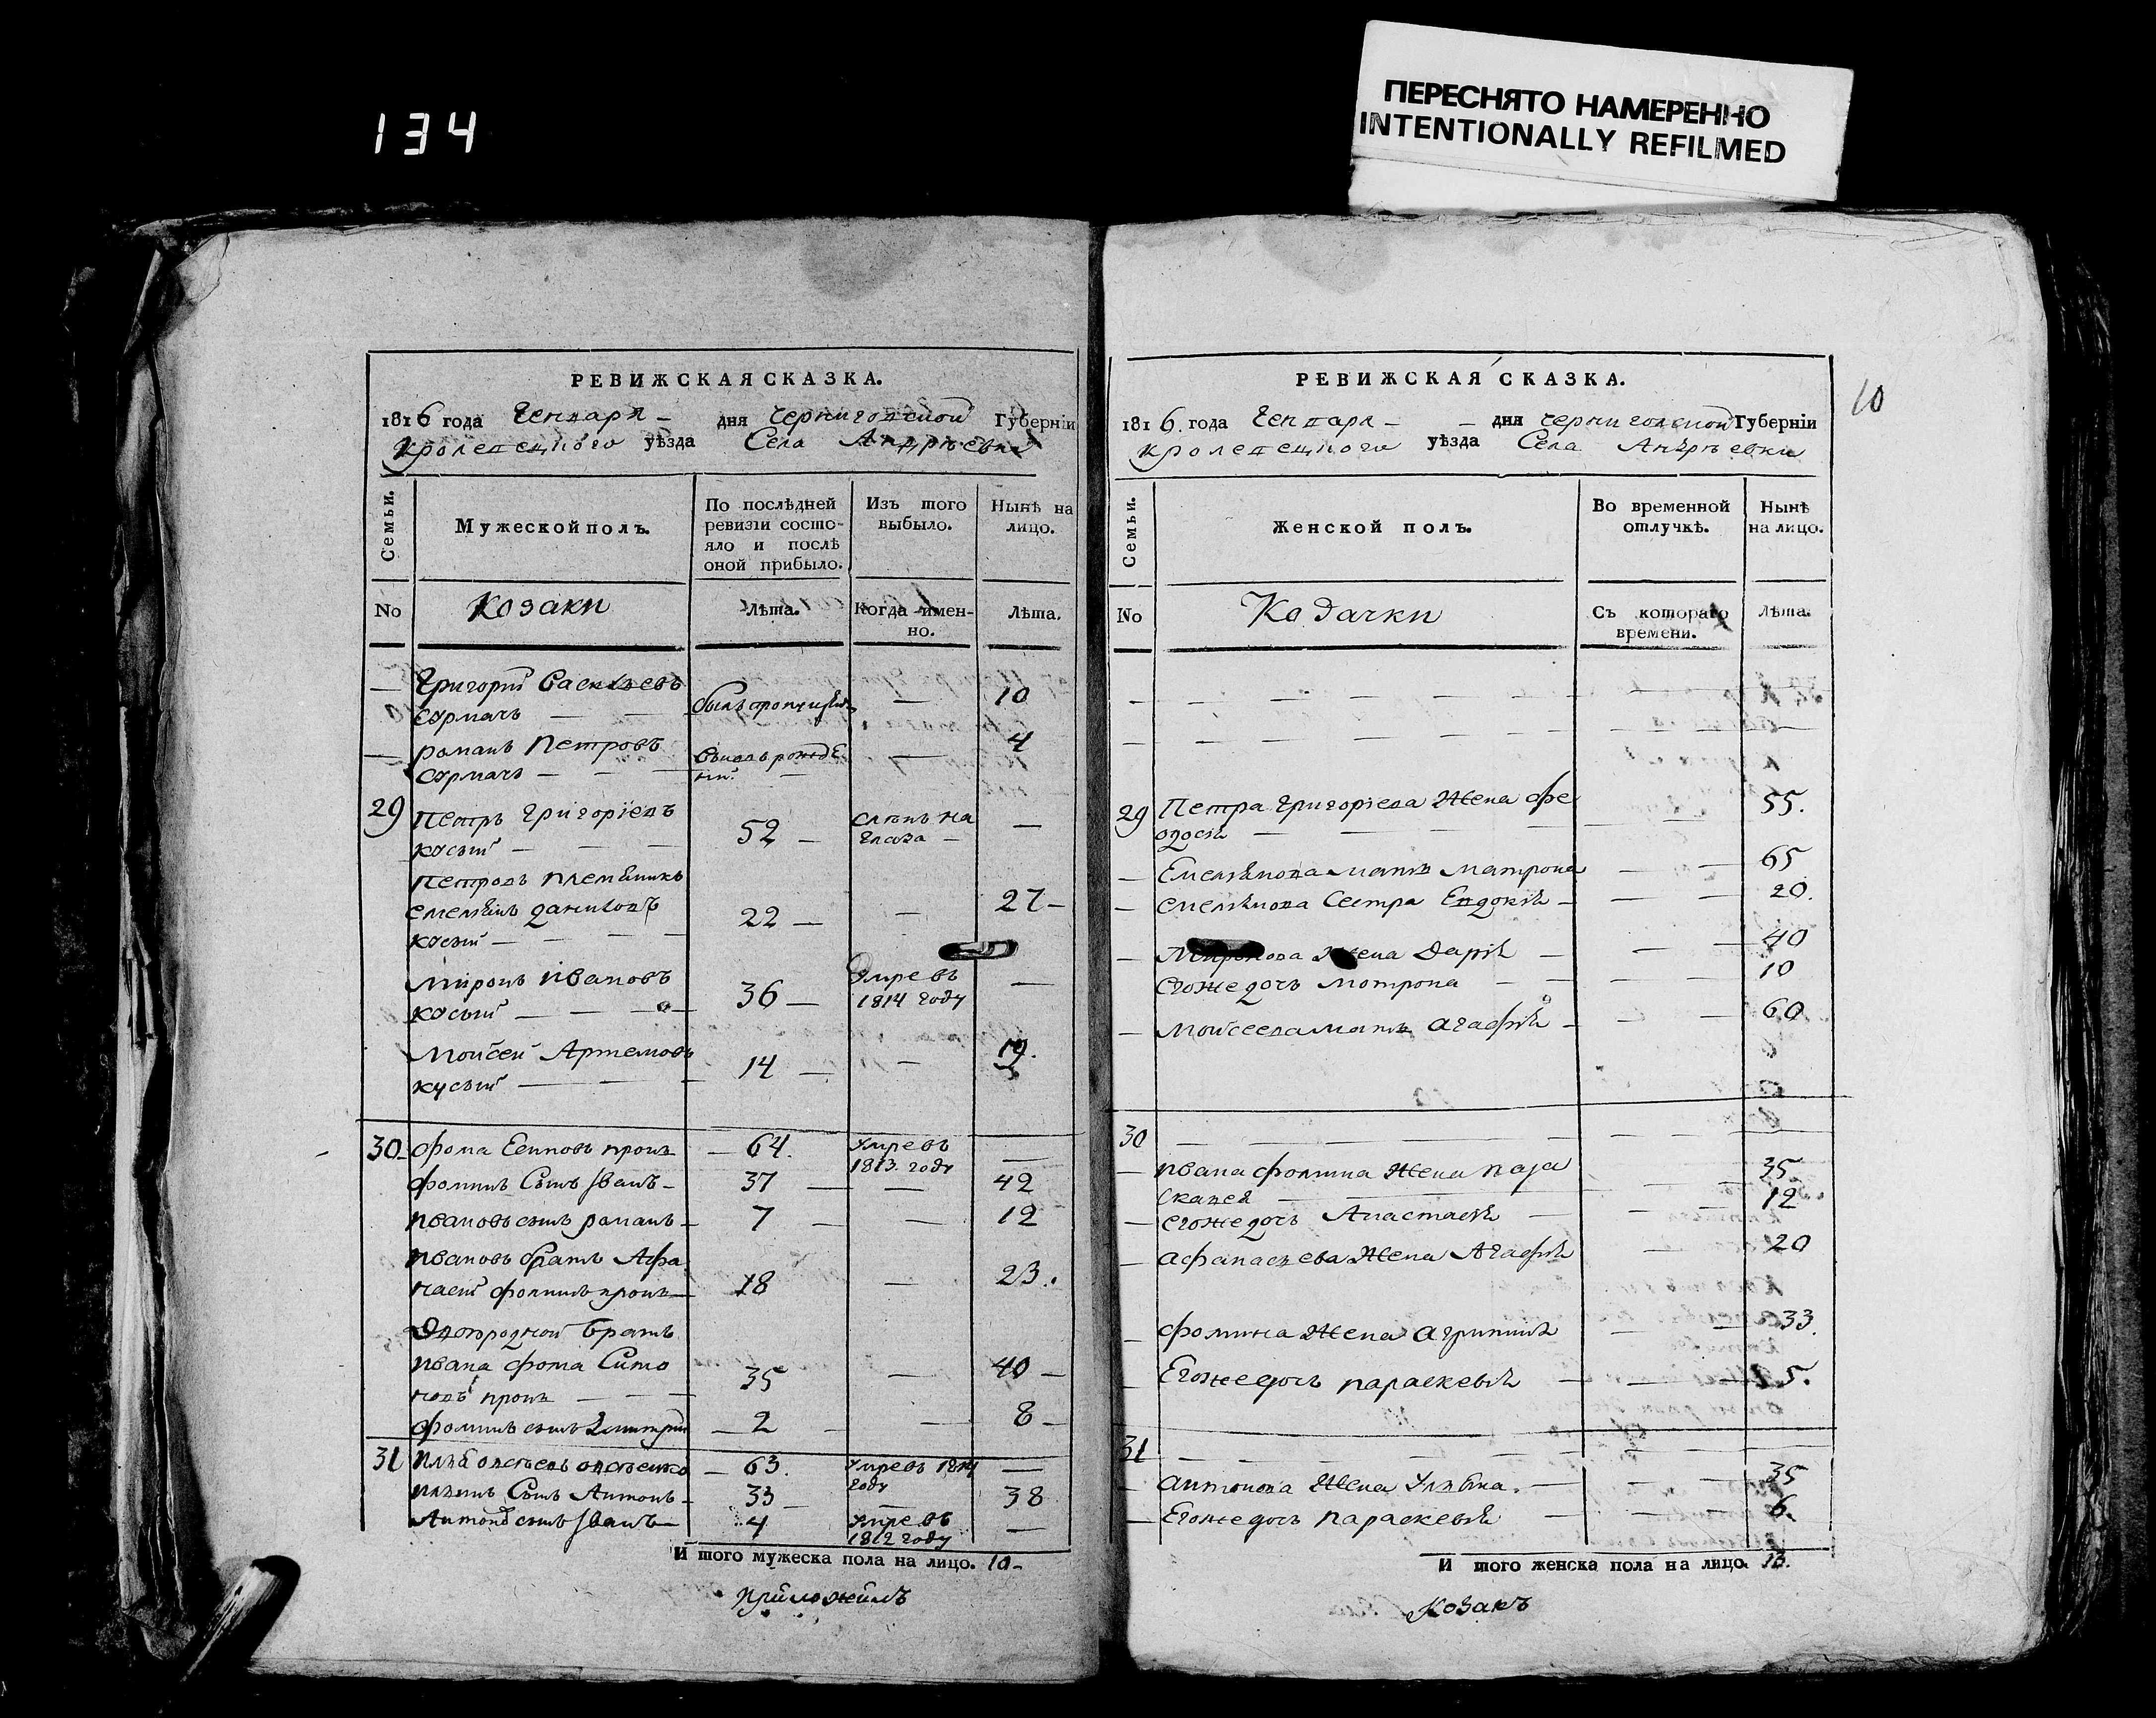 134
ПЕРЕСНЯТО НАМЕРЕННО
INTENTIONALLY REFILMED
РЕВИЖСКАЯ СКАЗКА.
1816 года Генваря — дня Черниговской Губерніи
Кролевецкого уѣзда Села Андрѣевки
Семьи.
Мужеской полъ.
По послѣдней ревизіи состояло и послѣ оной прибыло.
Изъ того выбыло.
Нынѣ на лицо.
No
Козаки
Лѣта.
Когда имен-но.
Лѣта.
— Григорій Васильевъ
Сурмачъ — — былъ пропущенъ — 10
— Романъ Петровъ
Сурмачъ — — вновь рожде — 4
29 Петръ Григоріевъ
Кусый — — 52 — слѣпъ на глаза — —
Петровъ племянникъ
Емельянъ Даниловъ
Кусый — — 22 — — 27 —
Миронъ Ивановъ
Кусый — — 36 — Умре въ 1814 году —
Мойсей Артемовъ
Кусый — — 14 — — 19.
30 Фома Есиповъ — 64. Умре въ 1813. году —
Фоминъ Сынъ Иванъ — 37 — — 42
Ивановъ сынъ Романъ — 7 — — 12
Ивановъ братъ Афа
насій Фоминъ 18 — 23.
Двоюродной братъ
Ивана Фома Симо
новъ — 35 — 40 —
Фоминъ сынъ Дмитрій — 2 — — 8 —
31 Илья — 63. Умре въ 1814 году —
Ильинъ Сынъ Антонъ — 33 — — 38
Антоновъ сынъ Иванъ — 4 Умре въ 1812 году —
И того мужеска пола на лицо. 10 —
приложилъ
10
РЕВИЖСКАЯ СКАЗКА.
1816. года Генваря — — дня Черниговской Губерніи
Кролевецкого уѣзда Села Андрѣевки
Семьи.
Женской полъ.
Во временной отлучкѣ.
Нынѣ на лицо.
No
Козачки
Съ котораго времени.
Лѣта.
29 Петра Григоріева Жена Фе
одосія — — — 55.
— Емельянова мать Матрона — — 65
— Емельянова Сестра Евдокія — — — 20.
— Миронова Жена Дарія — — 40
Егоже дочь Мотрона — — 10
— Мойсеева мать Агафія — — — 60
30
— Ивана Фомина Жена Пара
скевея — — 35
— Егоже дочь Анастасія — — 12
— Афанасьева Жена Агафія — — 20
— Фомина Жена Агрипина — — 33.
— Егоже дочь Параскевія — — — 5.
31
— Антонова Жена Ульяна. — — — 35
— Егоже дочь Параскевія — — — 6.
И того женска пола на лицо. 13.
Козакъ